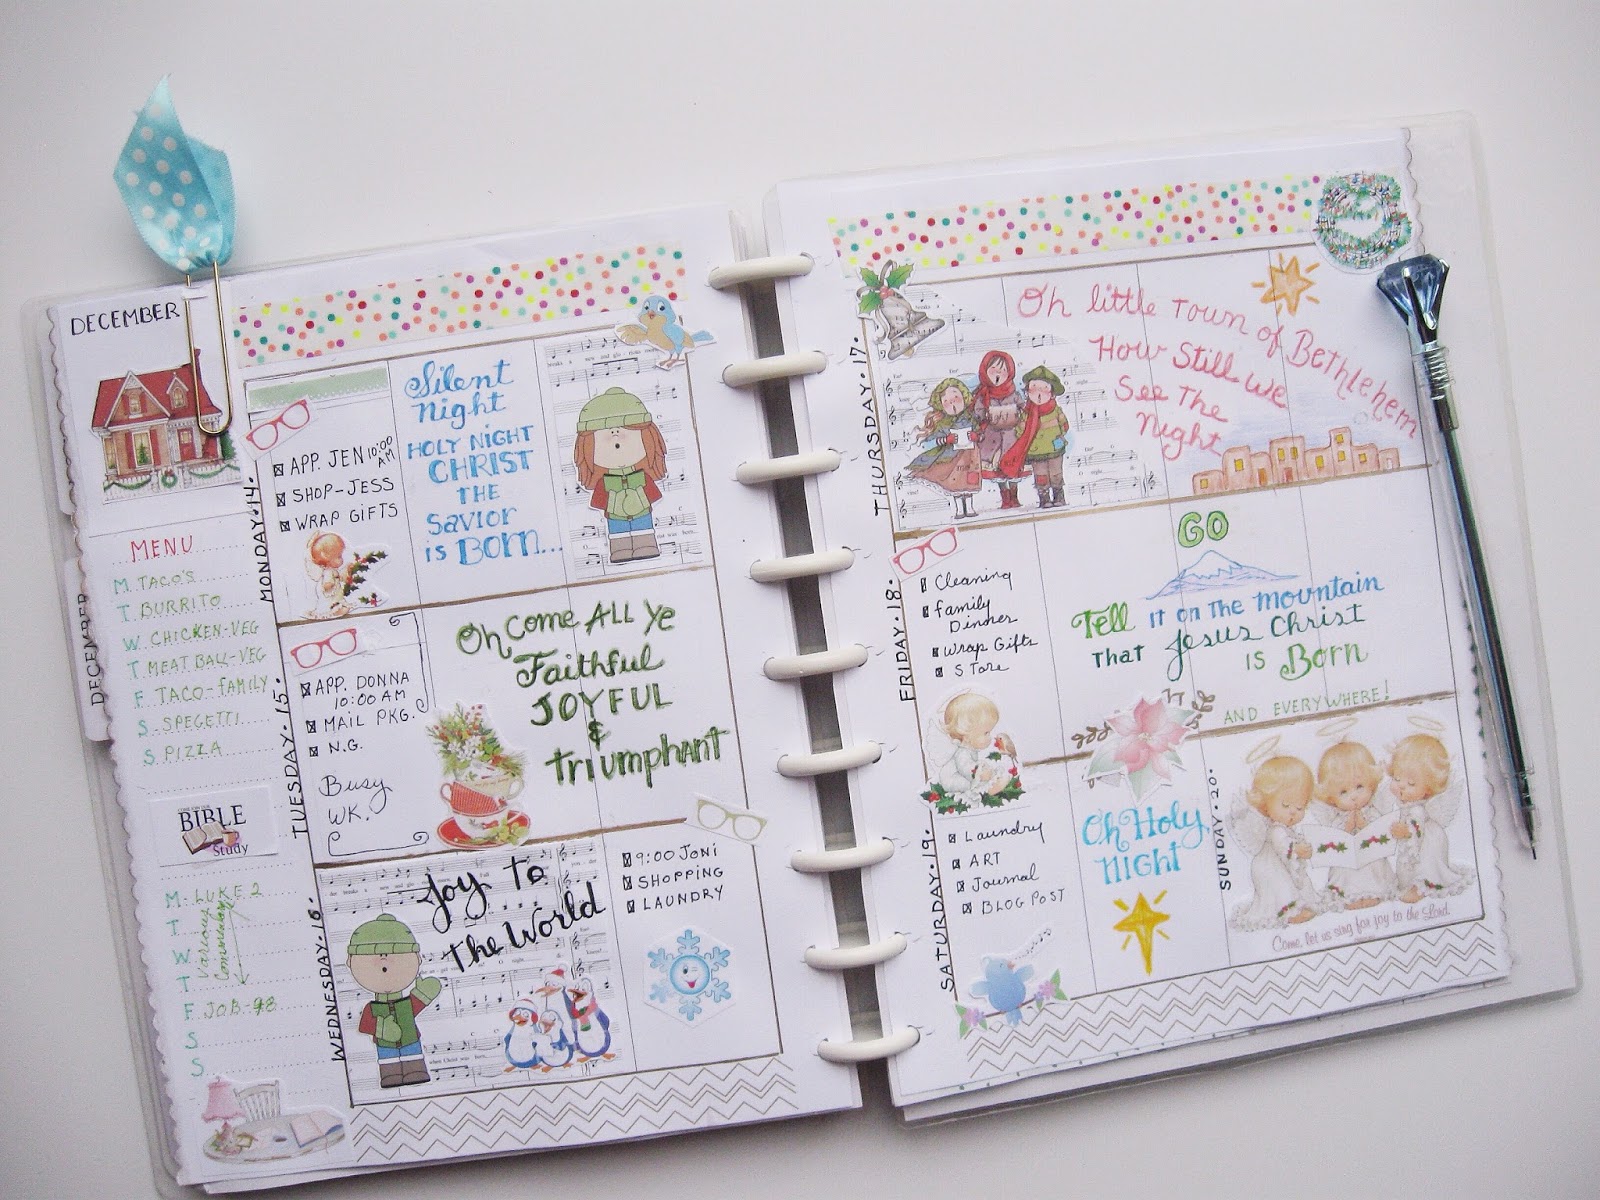 DECEMBER
DECEMBER
MENU
M. TACO'S
T. BURRITO
W. CHICKEN-VEG
T MEAT BALL-VEG
F. TACO-FAMILY
S. SPEGETTI
S. PIZZA
BIBLE
Study
M. LUKE 2
T Various
W
T
F JOB-48
S
S
MONDAY.14.
APP. JEN 10:00 AM
SHOP-JESS
WRAP GIFTS
Silent
Night
HOLY NIGHT
CHRIST
THE
Savior
is BORN...
TUESDAY.15.
APP. DONNA
10:00 AM
MAIL PKG.
N.G.
Busy
WK.
Oh Come ALL Ye
Faithful
JOYFUL
&
triumphant
WEDNESDAY.16.
Joy To
The World
9:00 JONI
SHOPPING
LAUNDRY
THURSDAY.17.
Oh little Town of Bethlehem
How Still We
See The
Night
FRIDAY.18.
Cleaning
family
Dinner
Wrap Gifts
STore
GO
Tell IT on The mountain
That Jesus Christ
is Born
AND EVERYWHERE!
SATURDAY.19.
Laundry
ART
Journal
BLOG POST
Oh Holy
NIGHT
SUNDAY.20.
Come, let us sing for joy to the Lord